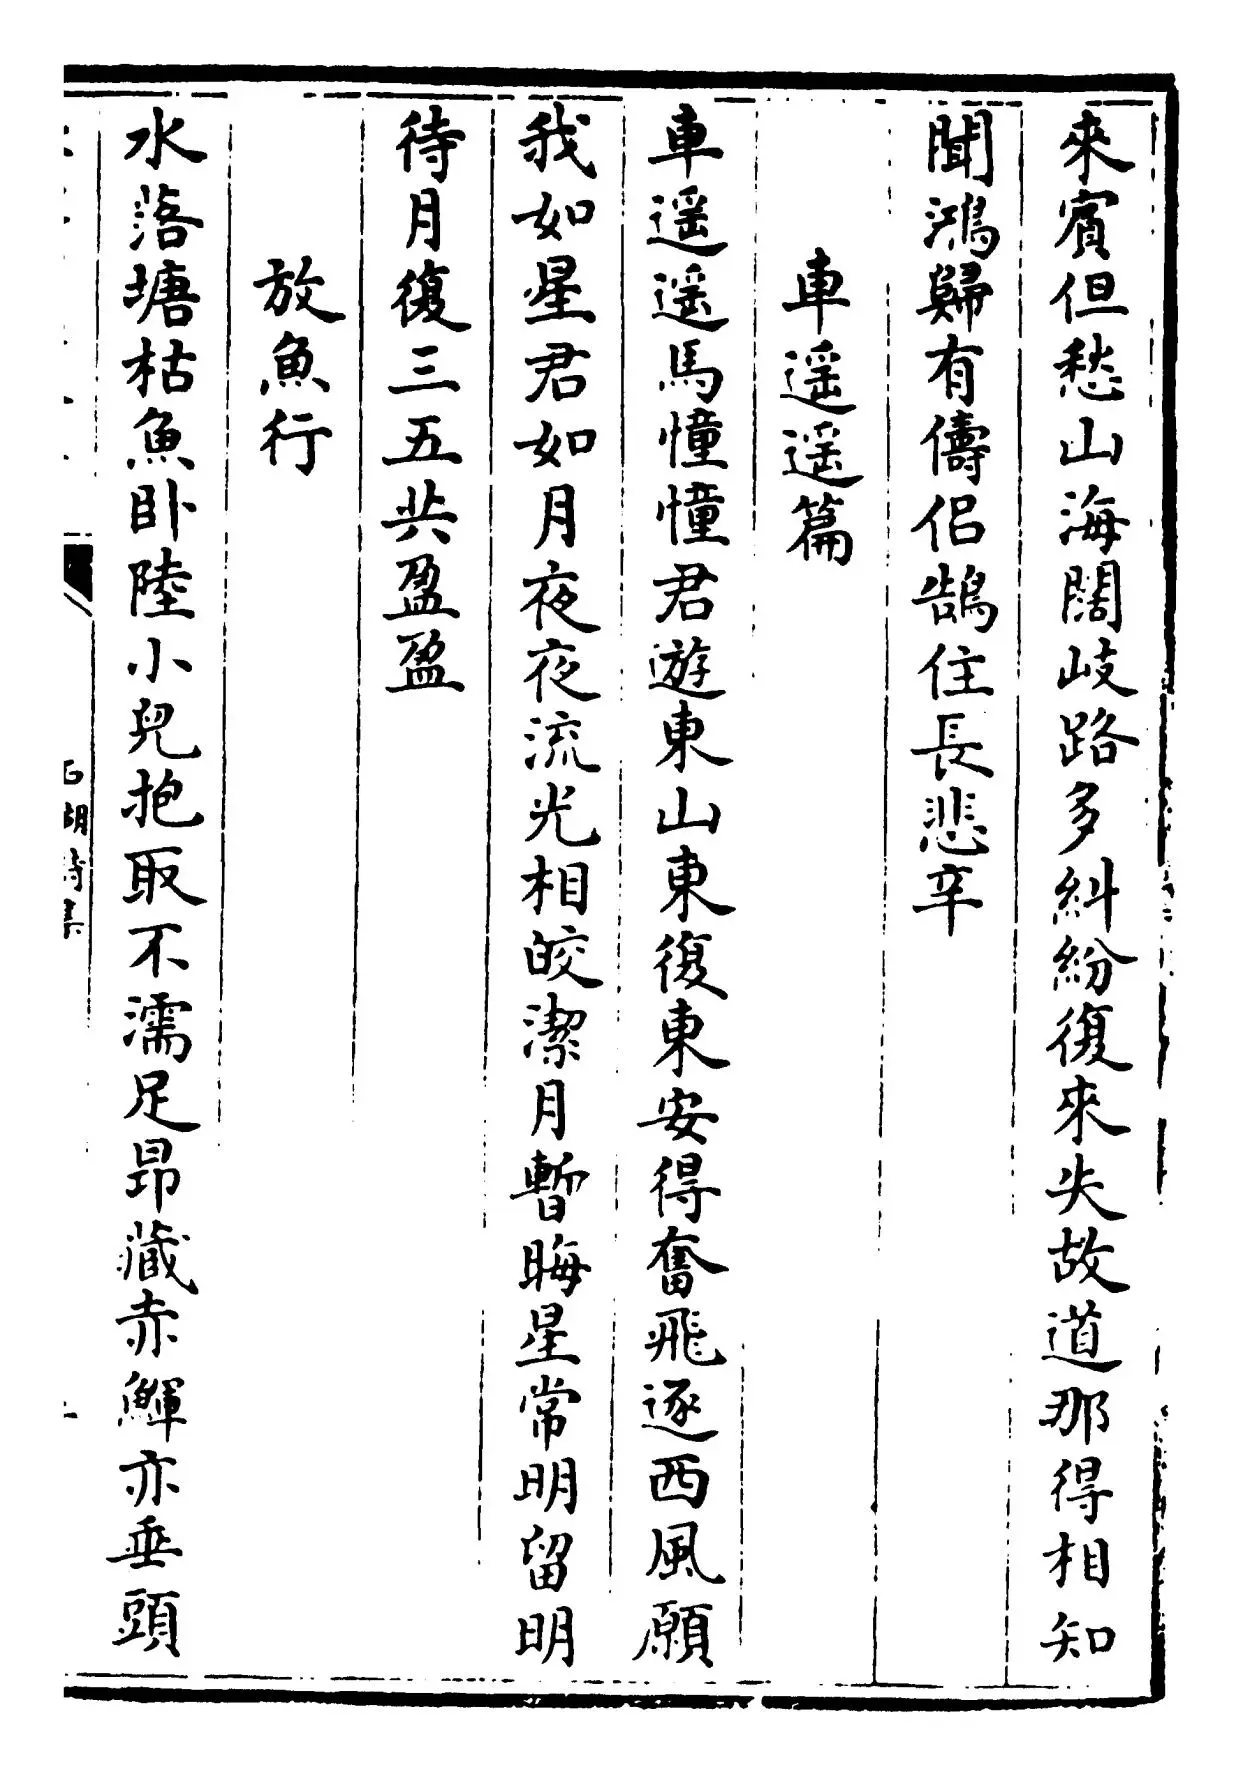 來賓但愁山海闊岐路多糾紛復來失故道那得相知
聞鴻歸有儔侶鵠住長悲辛
車遥遥篇
車遥遥馬憧憧君遊東山東復東安得奮飛逐西風願
我如星君如月夜夜流光相皎潔月暫晦星常明留明
待月復三五共盈盈
放魚行
水落塘枯魚卧陸小兒抱取不濡足昂藏赤鯶亦垂頭
湖詩集